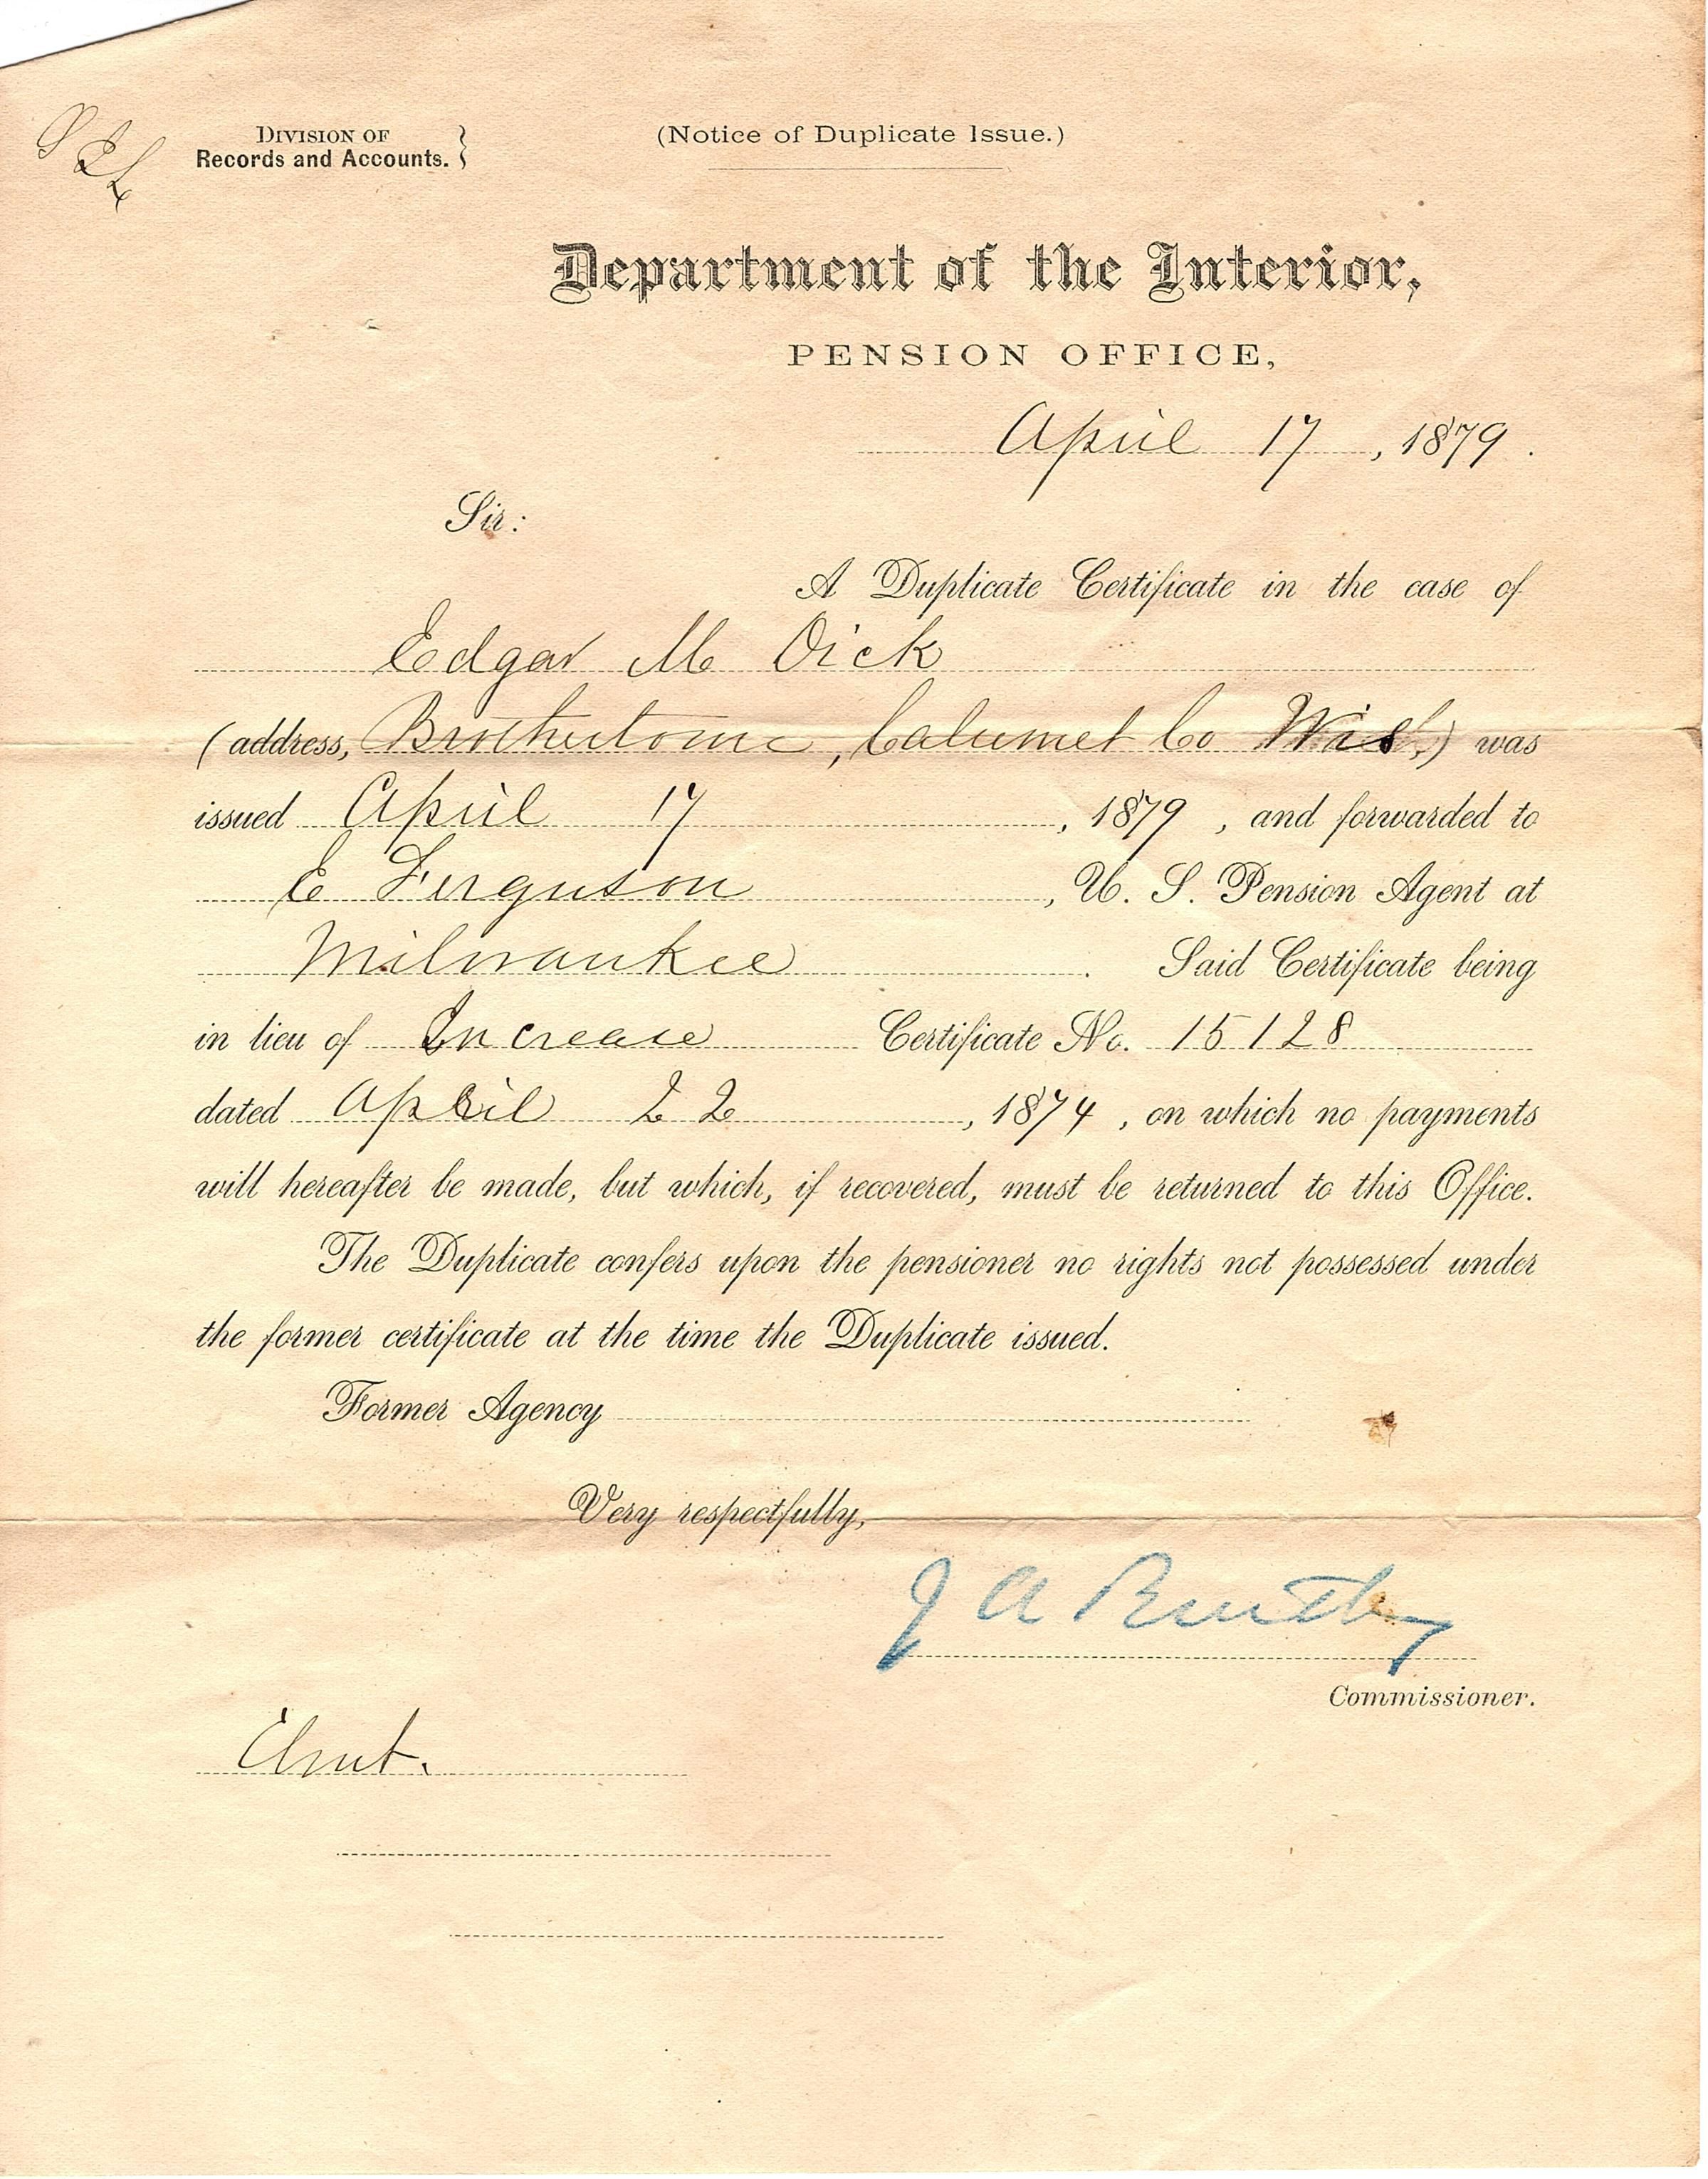 Division of
Records and Accounts. }
(Notice of Duplicate Issue.)
Department of the Interior,
PENSION OFFICE,
April 17, 1879.
Sir:
A Duplicate Certificate in the case of
Edgar M Dick
(address, Brothertown, Calumet Co Wis.) was
issued April 17, 1879, and forwarded to
E Ferguson, U. S. Pension Agent at
Milwaukee. Said Certificate being
in lieu of Increase Certificate No. 15128
dated April 22, 1874, on which no payments
will hereafter be made, but which, if recovered, must be returned to this Office.
The Duplicate confers upon the pensioner no rights not possessed under
the former certificate at the time the Duplicate issued.
Former Agency
Very respectfully,
J A Bentley
Commissioner.